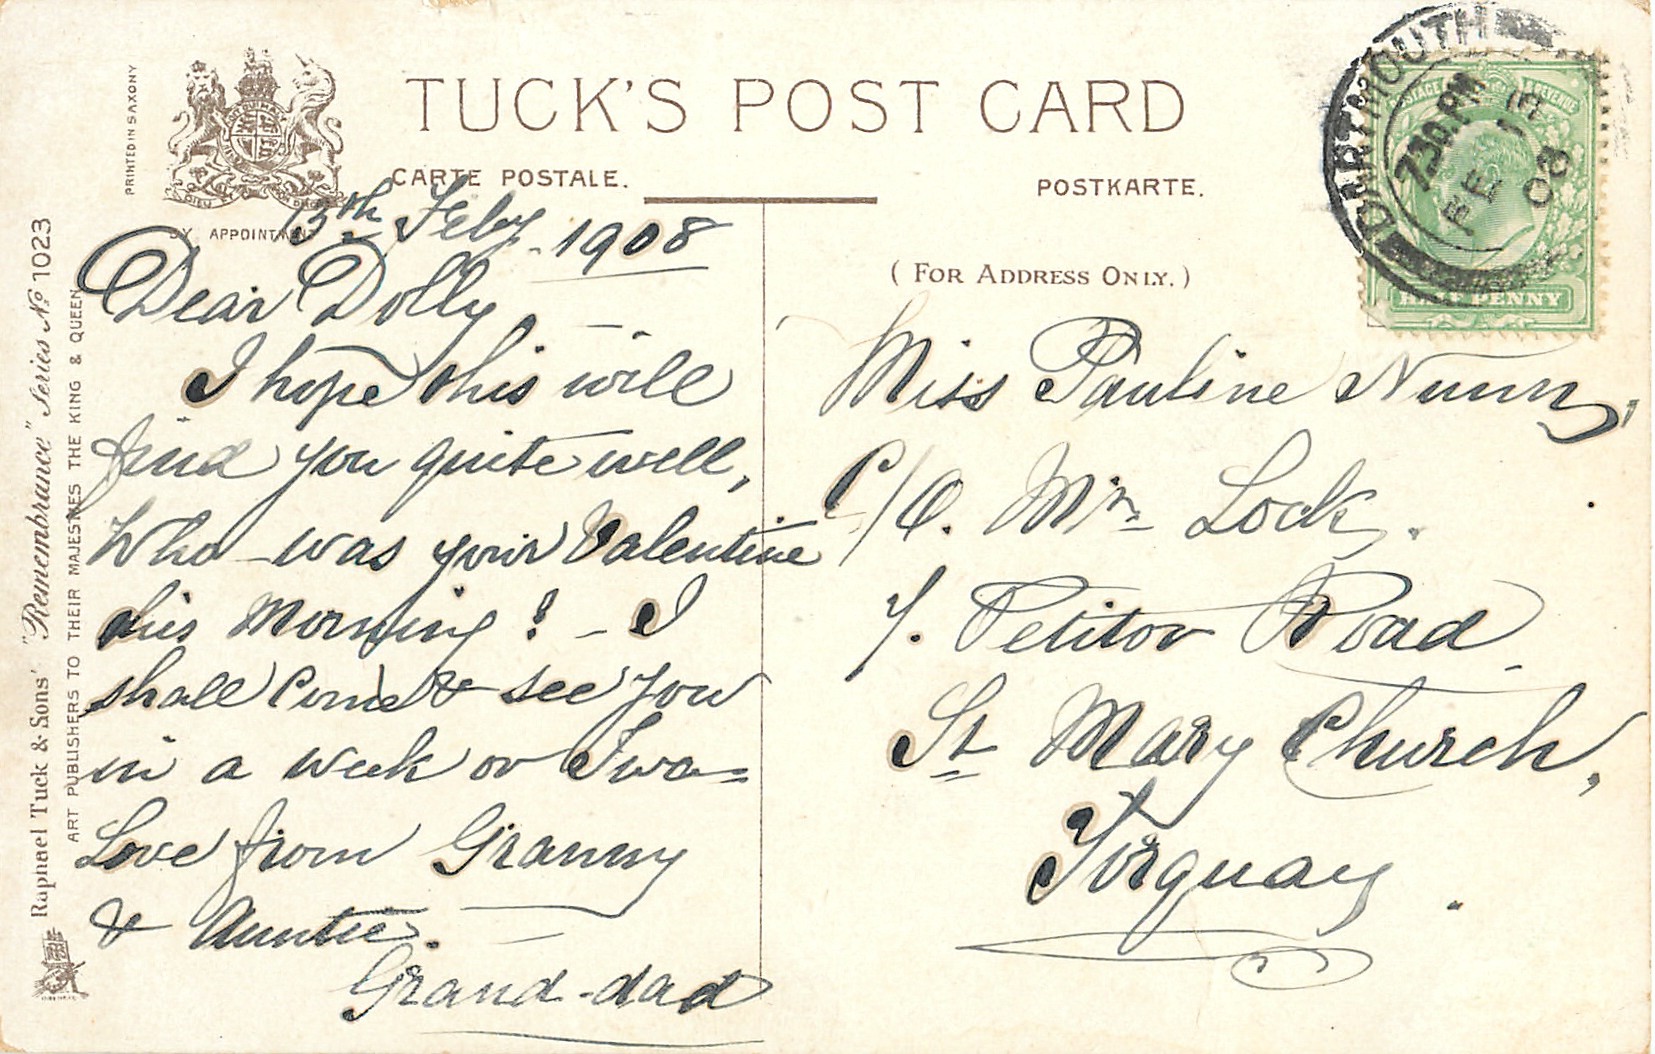 TUCK'S POST CARD
CARTE POSTALE.
POSTKARTE.
(FOR ADDRESS ONLY.)
PRINTED IN SAXONY
BY APPOINTMENT
Raphael Tuck & Sons' "Remembrance" Series No 1023
ART PUBLISHERS TO THEIR MAJESTIES THE KING & QUEEN
DARTMOUTH
7 30.PM
FE 15
08
POSTAGE REVENUE
HALF PENNY
15th Feby - 1908
Dear Dolly
I hope this will
find you quite well,
Who was your Valentine
this Morning? - I
shall Come & see you
in a week or Two =
Love from Granny
& Auntie.
Grand-dad
Miss Pauline Nunn,
C/O. Mrs Lock,.
7. Petitor Road
St Mary Church,
Torquay.